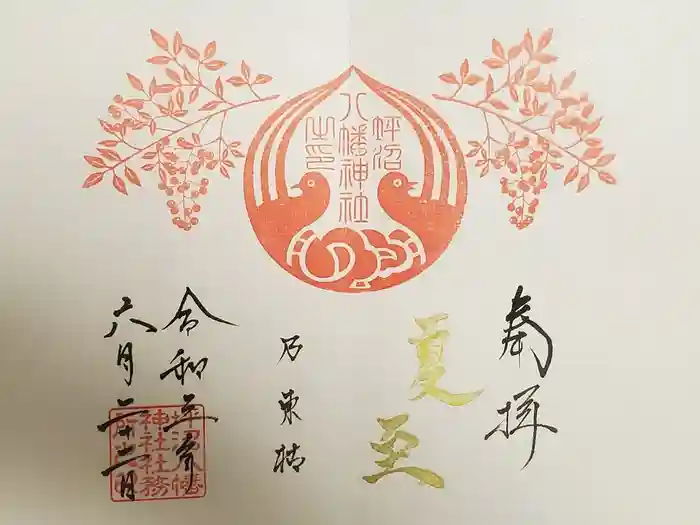 奉拝
夏至
坪沼
八幡神社
之印
乃東枯
令和五年
六月二十二日
坪沼八幡
神社社務